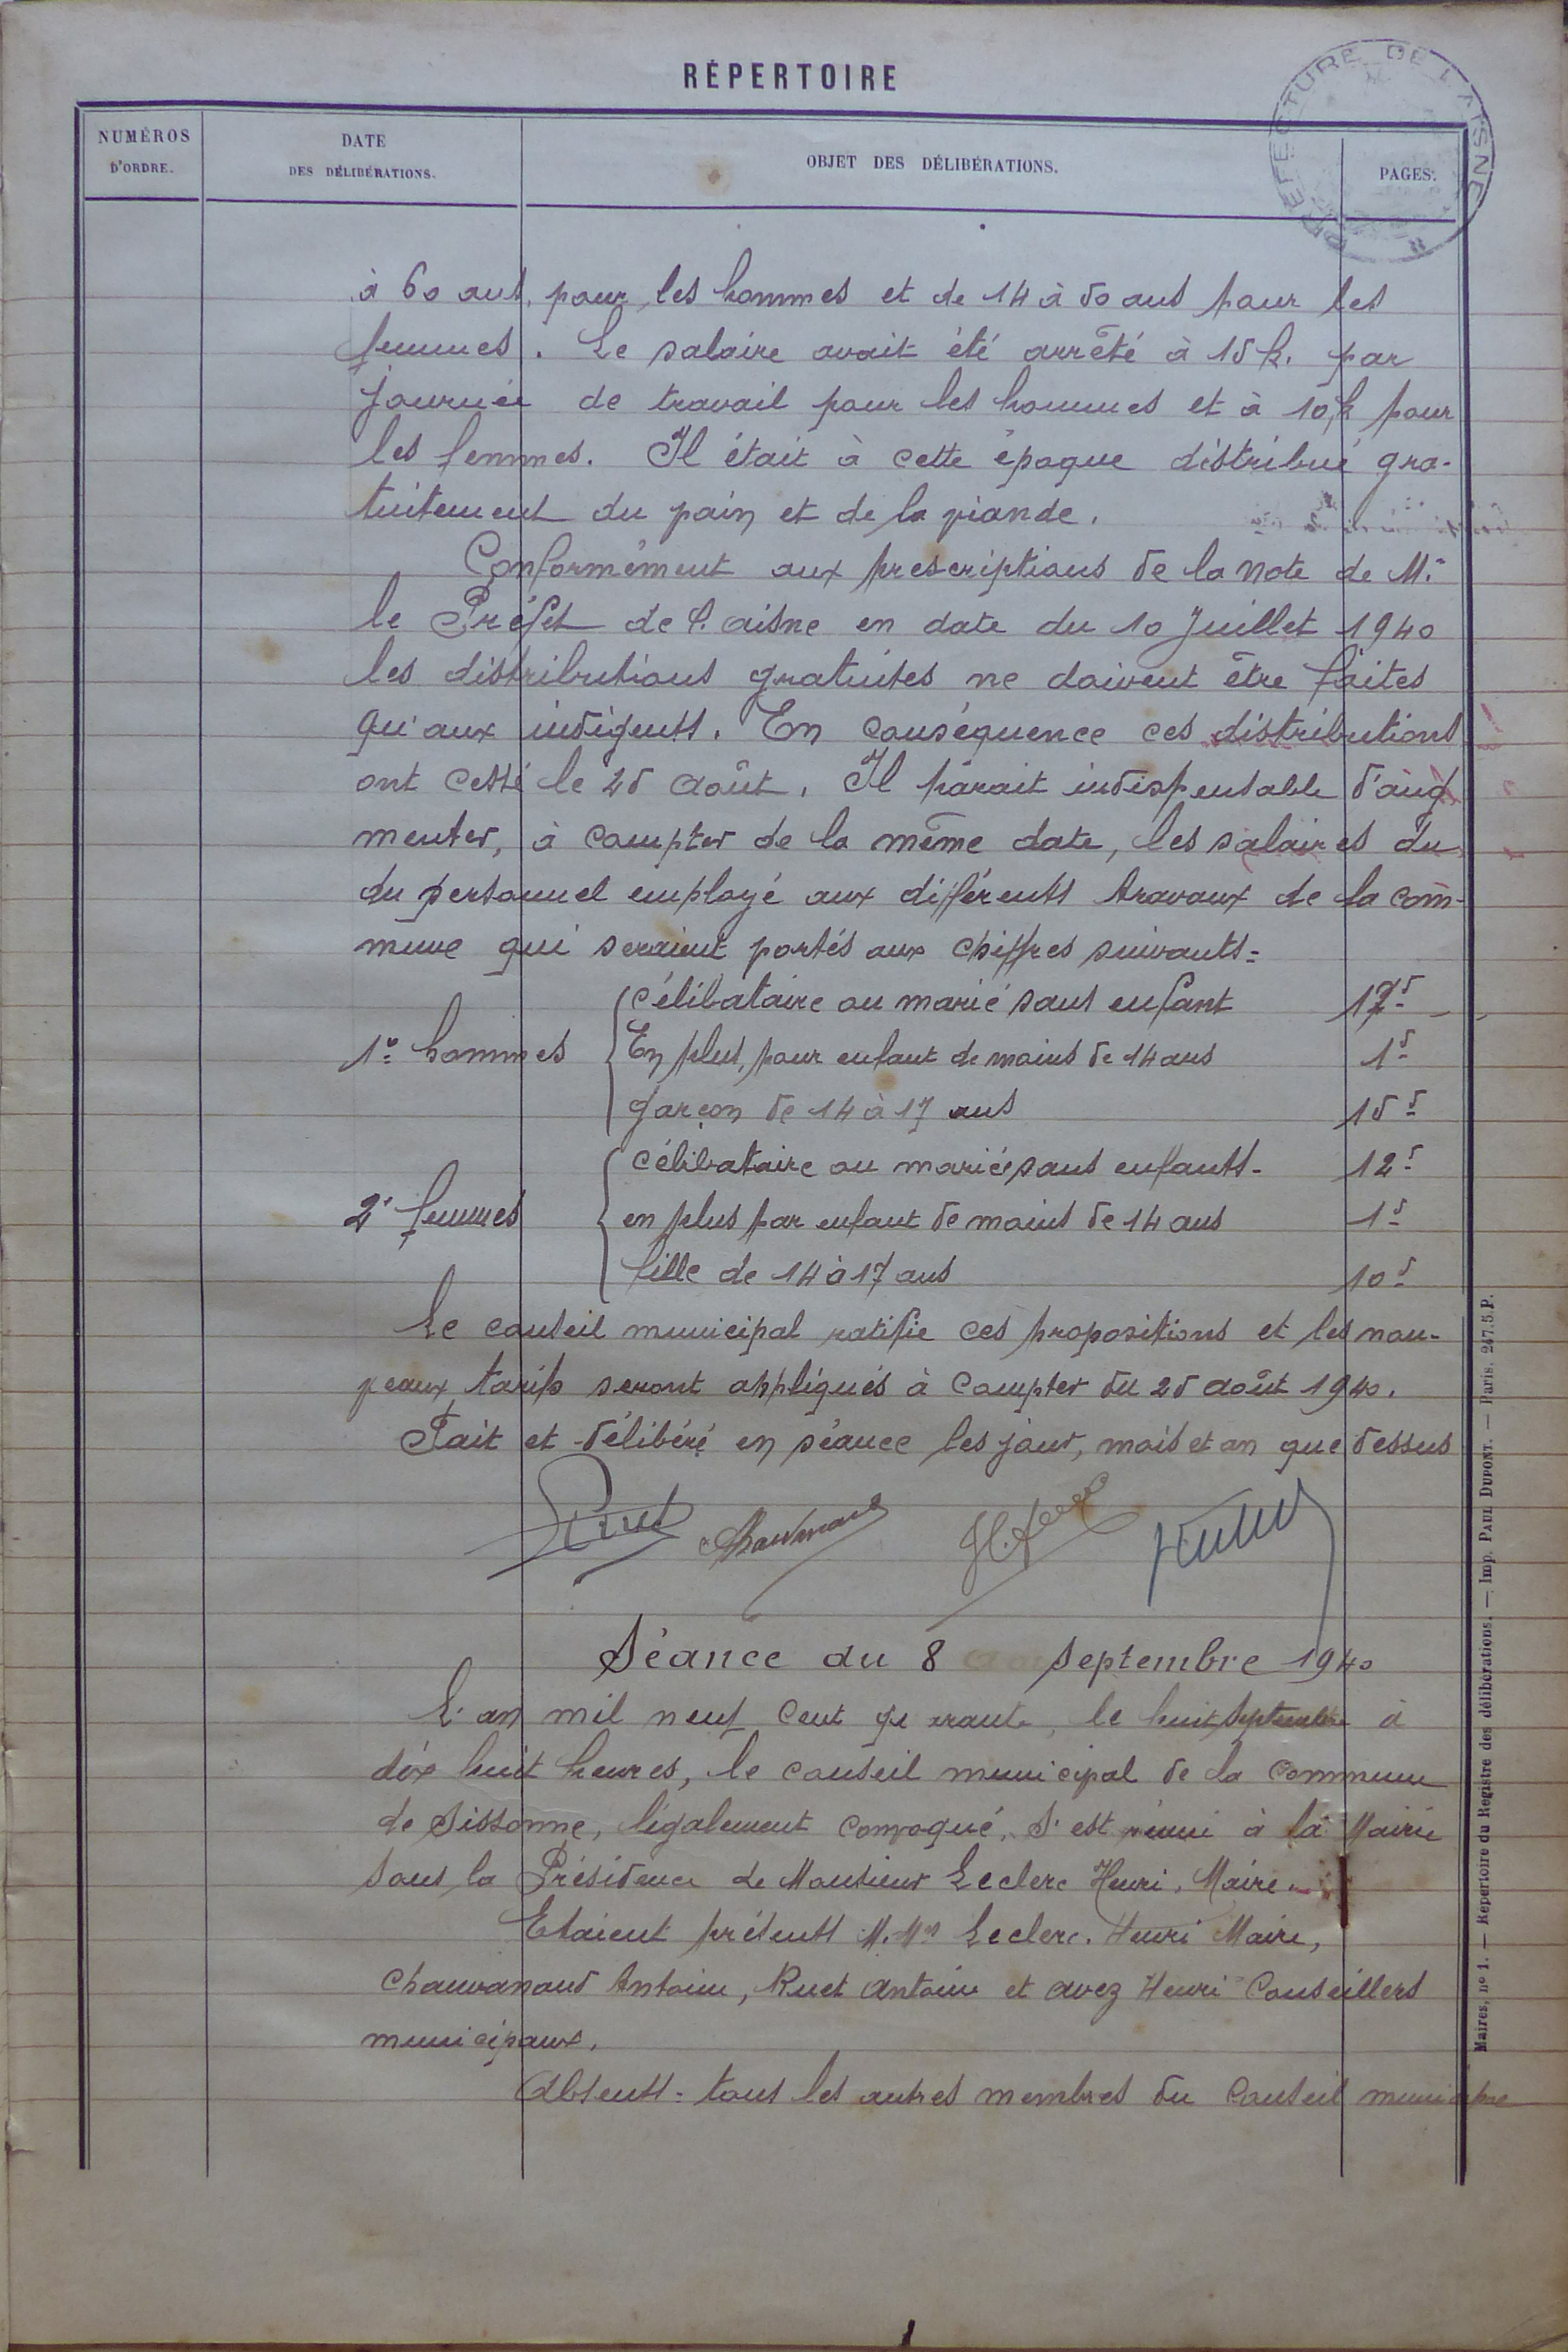 RÉPERTOIRE
PRÉFECTURE DE L'AISNE
NUMÉROS D'ORDRE.
DATE DES DÉLIBÉRATIONS.
OBJET DES DÉLIBÉRATIONS.
PAGES.
à 60 ans, pour les hommes et de 14 à 50 ans pour les
femmes. Le salaire avait été arrêté à 15 f. par
journée de travail pour les hommes et à 10 f pour
les femmes. Il était à cette époque distribué gra-
tuitement du pain et de la viande.
Conformément aux prescriptions de la note de M.
le Préfet de l'aisne en date du 10 Juillet 1940
les distributions gratuites ne doivent être faites
qu'aux indigents. En conséquence ces distributions
ont cessé le 25 Août. Il parait indispensable d'aug
menter, à compter de la même date, les salaires du
du personnel employé aux différents travaux de la com-
mune qui seraient portés aux chiffres suivants=
1° hommes
célibataire ou marié sans enfant 17f
En plus, pour enfant de moins de 14 ans 1f
garçon de 14 à 17 ans 15f
2° femmes
célibataire ou mariée sans enfants- 12f
en plus par enfant de moins de 14 ans 1f
fille de 14 à 17 ans 10f
Le conseil municipal ratifie ces propositions et les nou-
veaux tarifs seront appliqués à compter du 25 août 1940.
Fait et délibéré en séance les jour, mois et an que dessus
Séance du 8 Septembre 1940
L'an mil neuf cent quarante, le huit Septembre à
dix huit heures, le conseil municipal de la commune
de Sissonne, légalement convoqué, s'est réuni à la Mairie
sous la Présidence de Monsieur Leclerc Henri, Maire.
Etaient présents M.Mrs Leclerc. Henri Maire,
Chauvanaud Antoine, Ruet Antoine et avez Henri Conseillers
municipaux.
Absents= tous les autres membres du Conseil municipal
Maires, nº 1. — Répertoire du Registre des délibérations. — Imp. PAUL DUPONT. — Paris. 247.5.P.